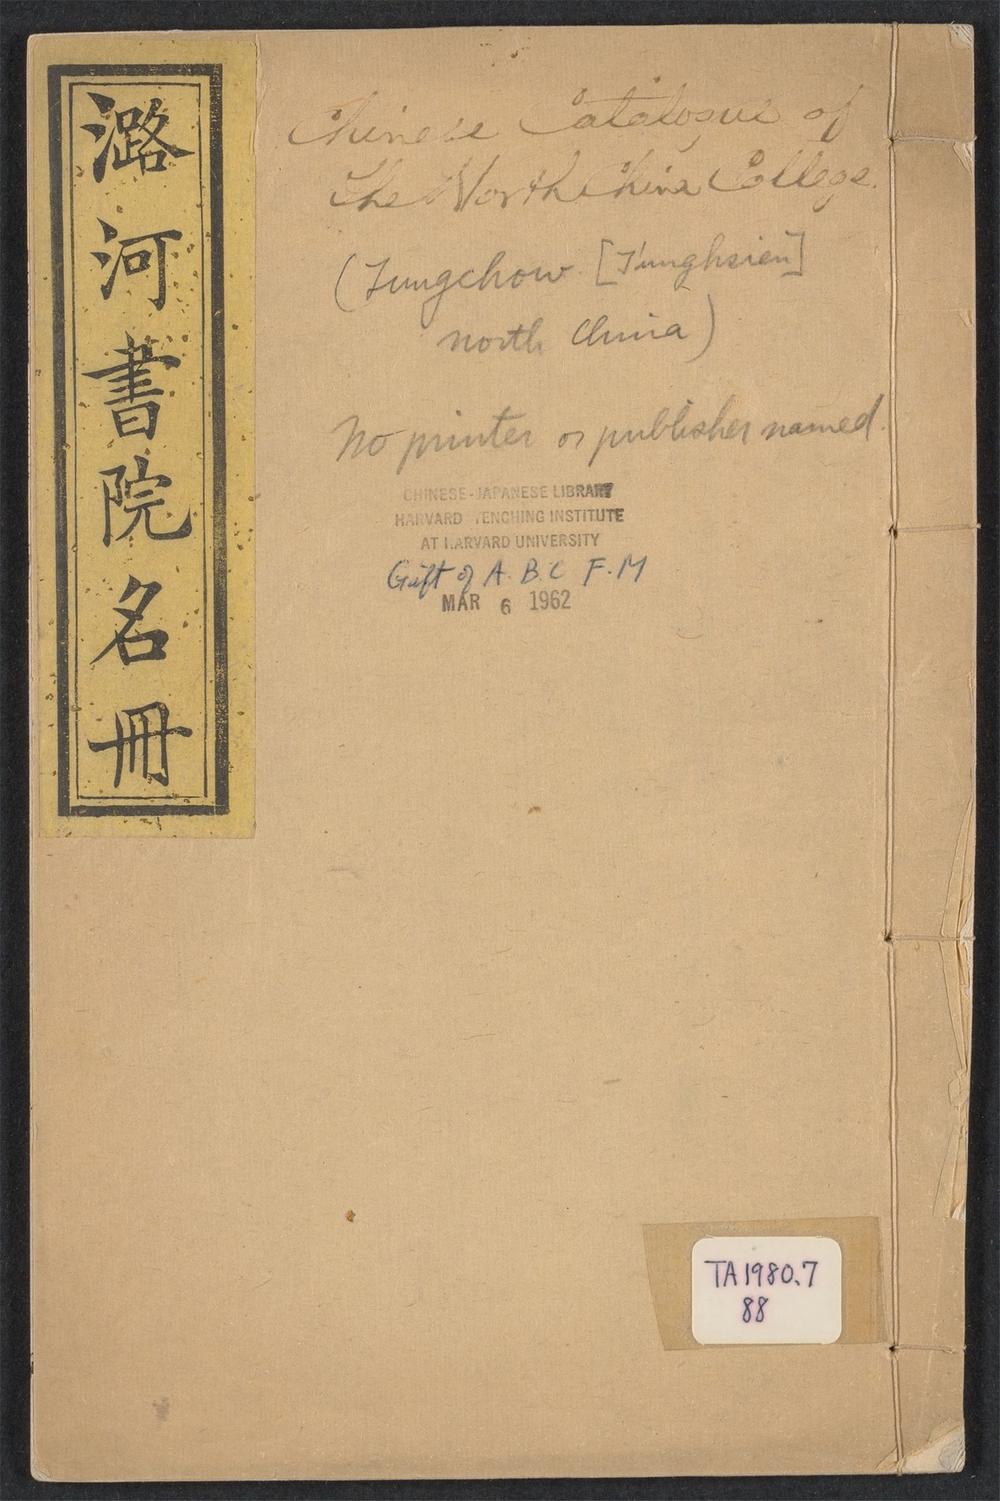 潞河書院名冊
Chinese Catalogue of
The North China College.
(Tungchow [T'unghsien]
north China)
No printer or publisher named.
CHINESE-JAPANESE LIBRARY
HARVARD YENCHING INSTITUTE
AT HARVARD UNIVERSITY
Gift of A.B.C F.M
MAR 6 1962
TA 1980.7
88